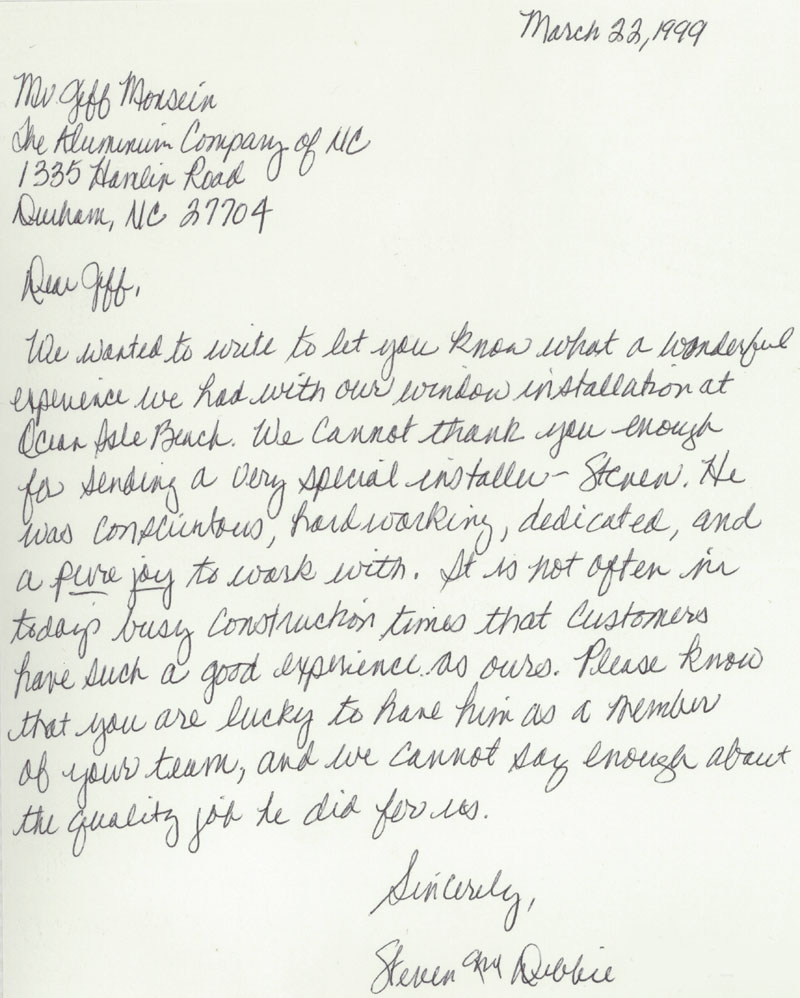 March 22, 1999
Mr. Jeff Monsein
The Aluminum Company of NC
1335 Hamlin Road
Durham, NC 27704
Dear Jeff,
We wanted to write to let you know what a wonderful
experience we had with our window installation at
Ocean Isle Beach. We cannot thank you enough
for sending a very special installer - Steven. He
was conscientous, hardworking, dedicated, and
a pure joy to work with. It is not often in
todays busy construction times that customers
have such a good experience as ours. Please know
that you are lucky to have him as a member
of your team, and we cannot say enough about
the quality job he did for us.
Sincerely,
Steven and Debbie